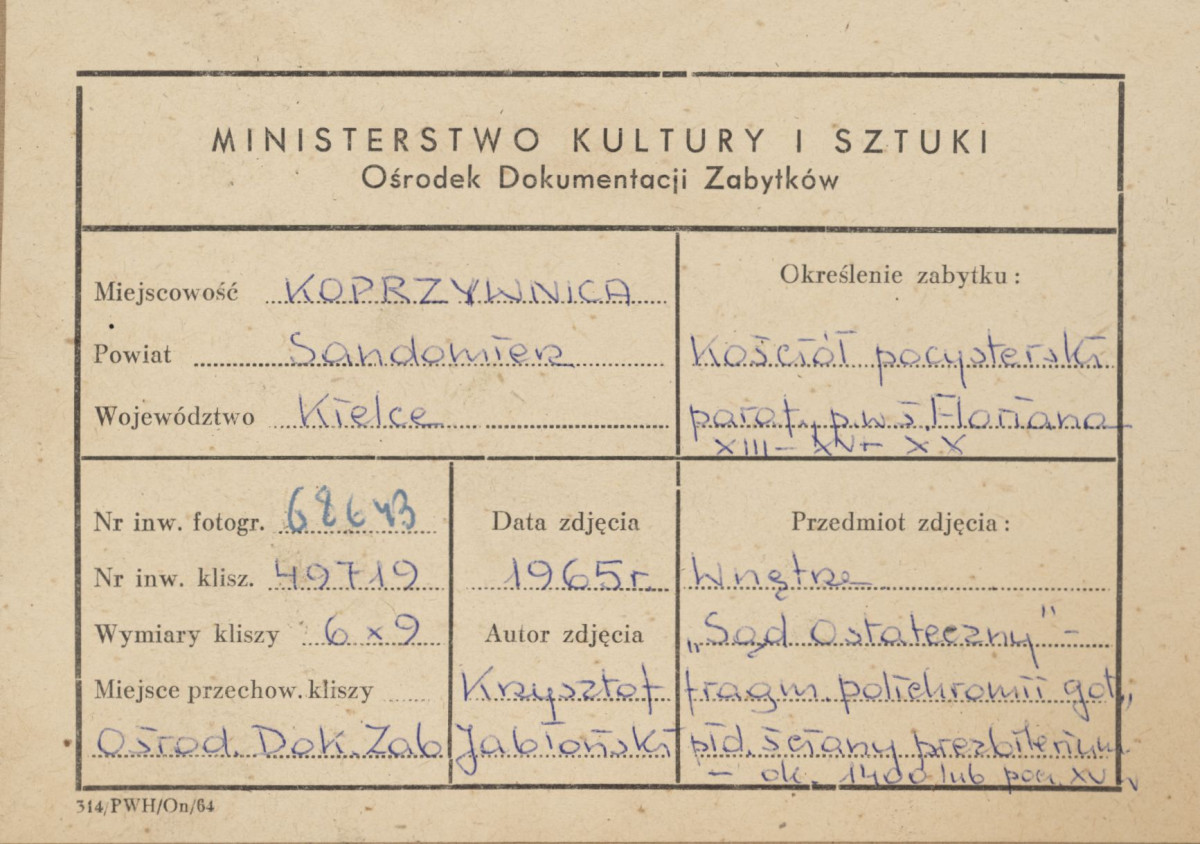 MINISTERSTWO KULTURY I SZTUKI
Ośrodek Dokumentacji Zabytków
Miejscowość KOPRZYWNICA
Powiat Sandomierz
Województwo Kielce
Określenie zabytku:
Kościół pocysterski
paraf. p.w ś. Floriana
XIII - XV - XX
Nr inw. fotogr. 68643
Nr inw. klisz. 49719
Wymiary kliszy 6x9
Miejsce przechow. kliszy
Ośrod. Dok. Zab
Data zdjęcia
1965r.
Autor zdjęcia
Krzysztof
Jabłoński
Przedmiot zdjęcia:
Wnętrze
„Sąd Ostateczny" -
fragm. polichromii got.,
płd. ściany prezbiterium
- ok. 1400 lub pocz. XV w
314/PWH/On/64